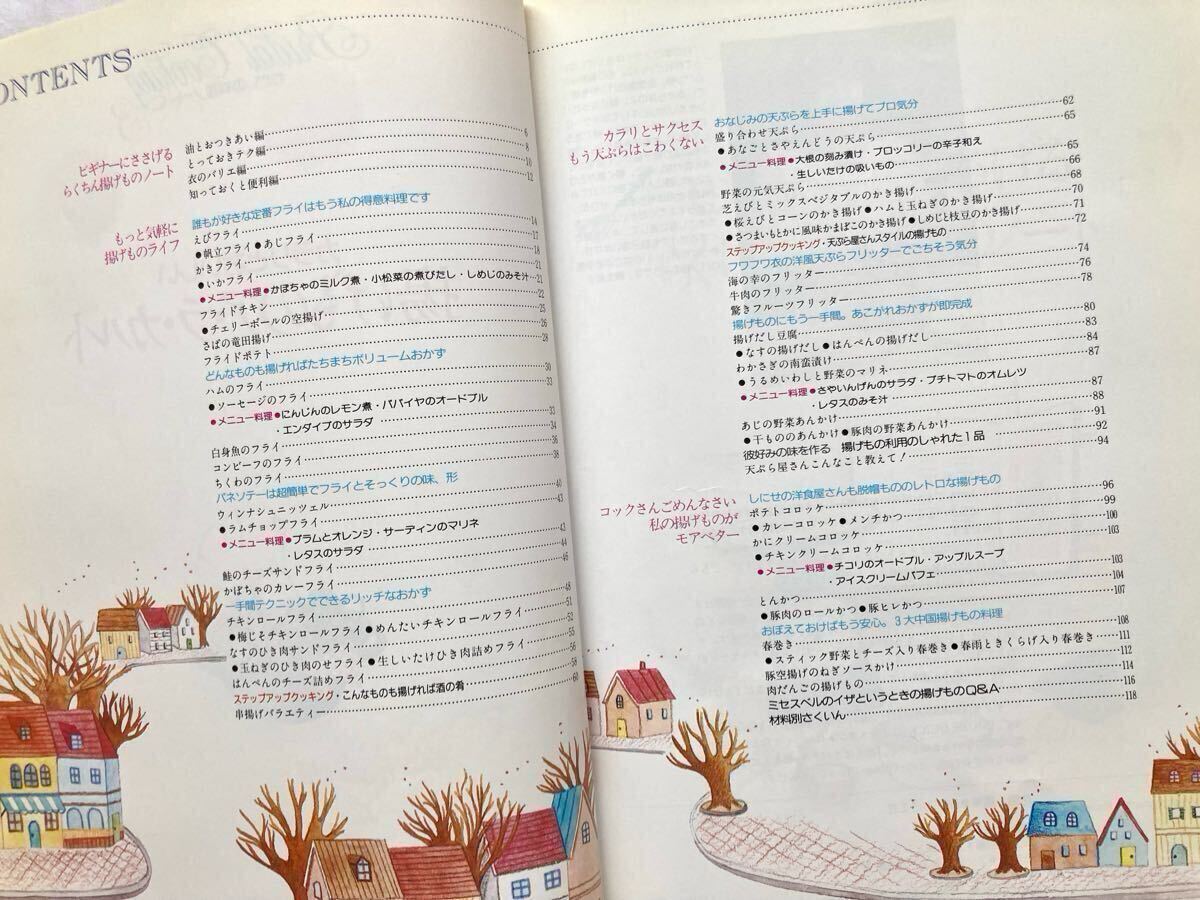 ONTENTS
ビギナーにささげる
らくちん揚げものノート
油とおつきあい編 6
とっておきテク編 8
衣のバリエ編 10
知っておくと便利編 12
もっと気軽に
揚げものライフ
誰もが好きな定番フライはもう私の得意料理です
えびフライ 14
●帆立フライ●あじフライ 17
かきフライ 18
●いかフライ 21
●メニュー料理●かぼちゃのミルク煮・小松菜の煮びたし・しめじのみそ汁 21
フライドチキン 22
●チェリーボールの空揚げ 25
さばの竜田揚げ 26
フライドポテト 28
どんなものも揚げればたちまちボリュームおかず
ハムのフライ 30
●ソーセージのフライ 33
●メニュー料理●にんじんのレモン煮・パパイヤのオードブル
・エンダイブのサラダ 33
白身魚のフライ 34
コンビーフのフライ 36
ちくわのフライ 38
パネソテーは超簡単でフライとそっくりの味、形
ウィンナシュニッツェル 40
●ラムチョップフライ 43
●メニュー料理●プラムとオレンジ・サーディンのマリネ
・レタスのサラダ 43
鮭のチーズサンドフライ 44
かぼちゃのカレーフライ 46
一手間テクニックでできるリッチなおかず
チキンロールフライ 48
●梅じそチキンロールフライ●めんたいチキンロールフライ 51
なすのひき肉サンドフライ 52
●玉ねぎのひき肉のせフライ●生しいたけひき肉詰めフライ 55
はんぺんのチーズ詰めフライ 56
ステップアップクッキング・こんなものも揚げれば酒の肴 58
串揚げバラエティー 60
カラリとサクセス
もう天ぷらはこわくない
おなじみの天ぷらを上手に揚げてプロ気分
盛り合わせ天ぷら 62
●あなごとさやえんどうの天ぷら 65
●メニュー料理●大根の刻み漬け・ブロッコリーの辛子和え
・生しいたけの吸いもの 65
野菜の元気天ぷら 66
芝えびとミックスベジタブルのかき揚げ 68
●桜えびとコーンのかき揚げ●ハムと玉ねぎのかき揚げ 70
●さつまいもとかに風味かまぼこのかき揚げ●しめじと枝豆のかき揚げ 71
ステップアップクッキング・天ぷら屋さんスタイルの揚げもの 72
フワフワ衣の洋風天ぷらフリッターでごちそう気分
海の幸のフリッター 74
牛肉のフリッター 76
驚きフルーツフリッター 78
揚げものにもう一手間。あこがれおかずが即完成
揚げだし豆腐 80
●なすの揚げだし●はんぺんの揚げだし 83
わかさぎの南蛮漬け 84
●うるめいわしと野菜のマリネ 87
●メニュー料理●さやいんげんのサラダ・プチトマトのオムレツ
・レタスのみそ汁 87
あじの野菜あんかけ 88
●干もののあんかけ●豚肉の野菜あんかけ 91
彼好みの味を作る　揚げもの利用のしゃれた1品 92
天ぷら屋さんこんなこと教えて！ 94
コックさんごめんなさい
私の揚げものが
モアベター
しにせの洋食屋さんも脱帽もののレトロな揚げもの
ポテトコロッケ 96
●カレーコロッケ●メンチかつ 99
かにクリームコロッケ 100
●チキンクリームコロッケ 103
●メニュー料理●チコリのオードブル・アップルスープ
・アイスクリームパフェ 103
とんかつ 104
●豚肉のロールかつ●豚ヒレかつ 107
おぼえておけばもう安心。3大中国揚げもの料理
春巻き 108
●スティック野菜とチーズ入り春巻き●春雨ときくらげ入り春巻き 111
豚空揚げのねぎソースかけ 112
肉だんごの揚げもの 114
ミセスベルのイザというときの揚げものQ&A 116
材料別さくいん 118